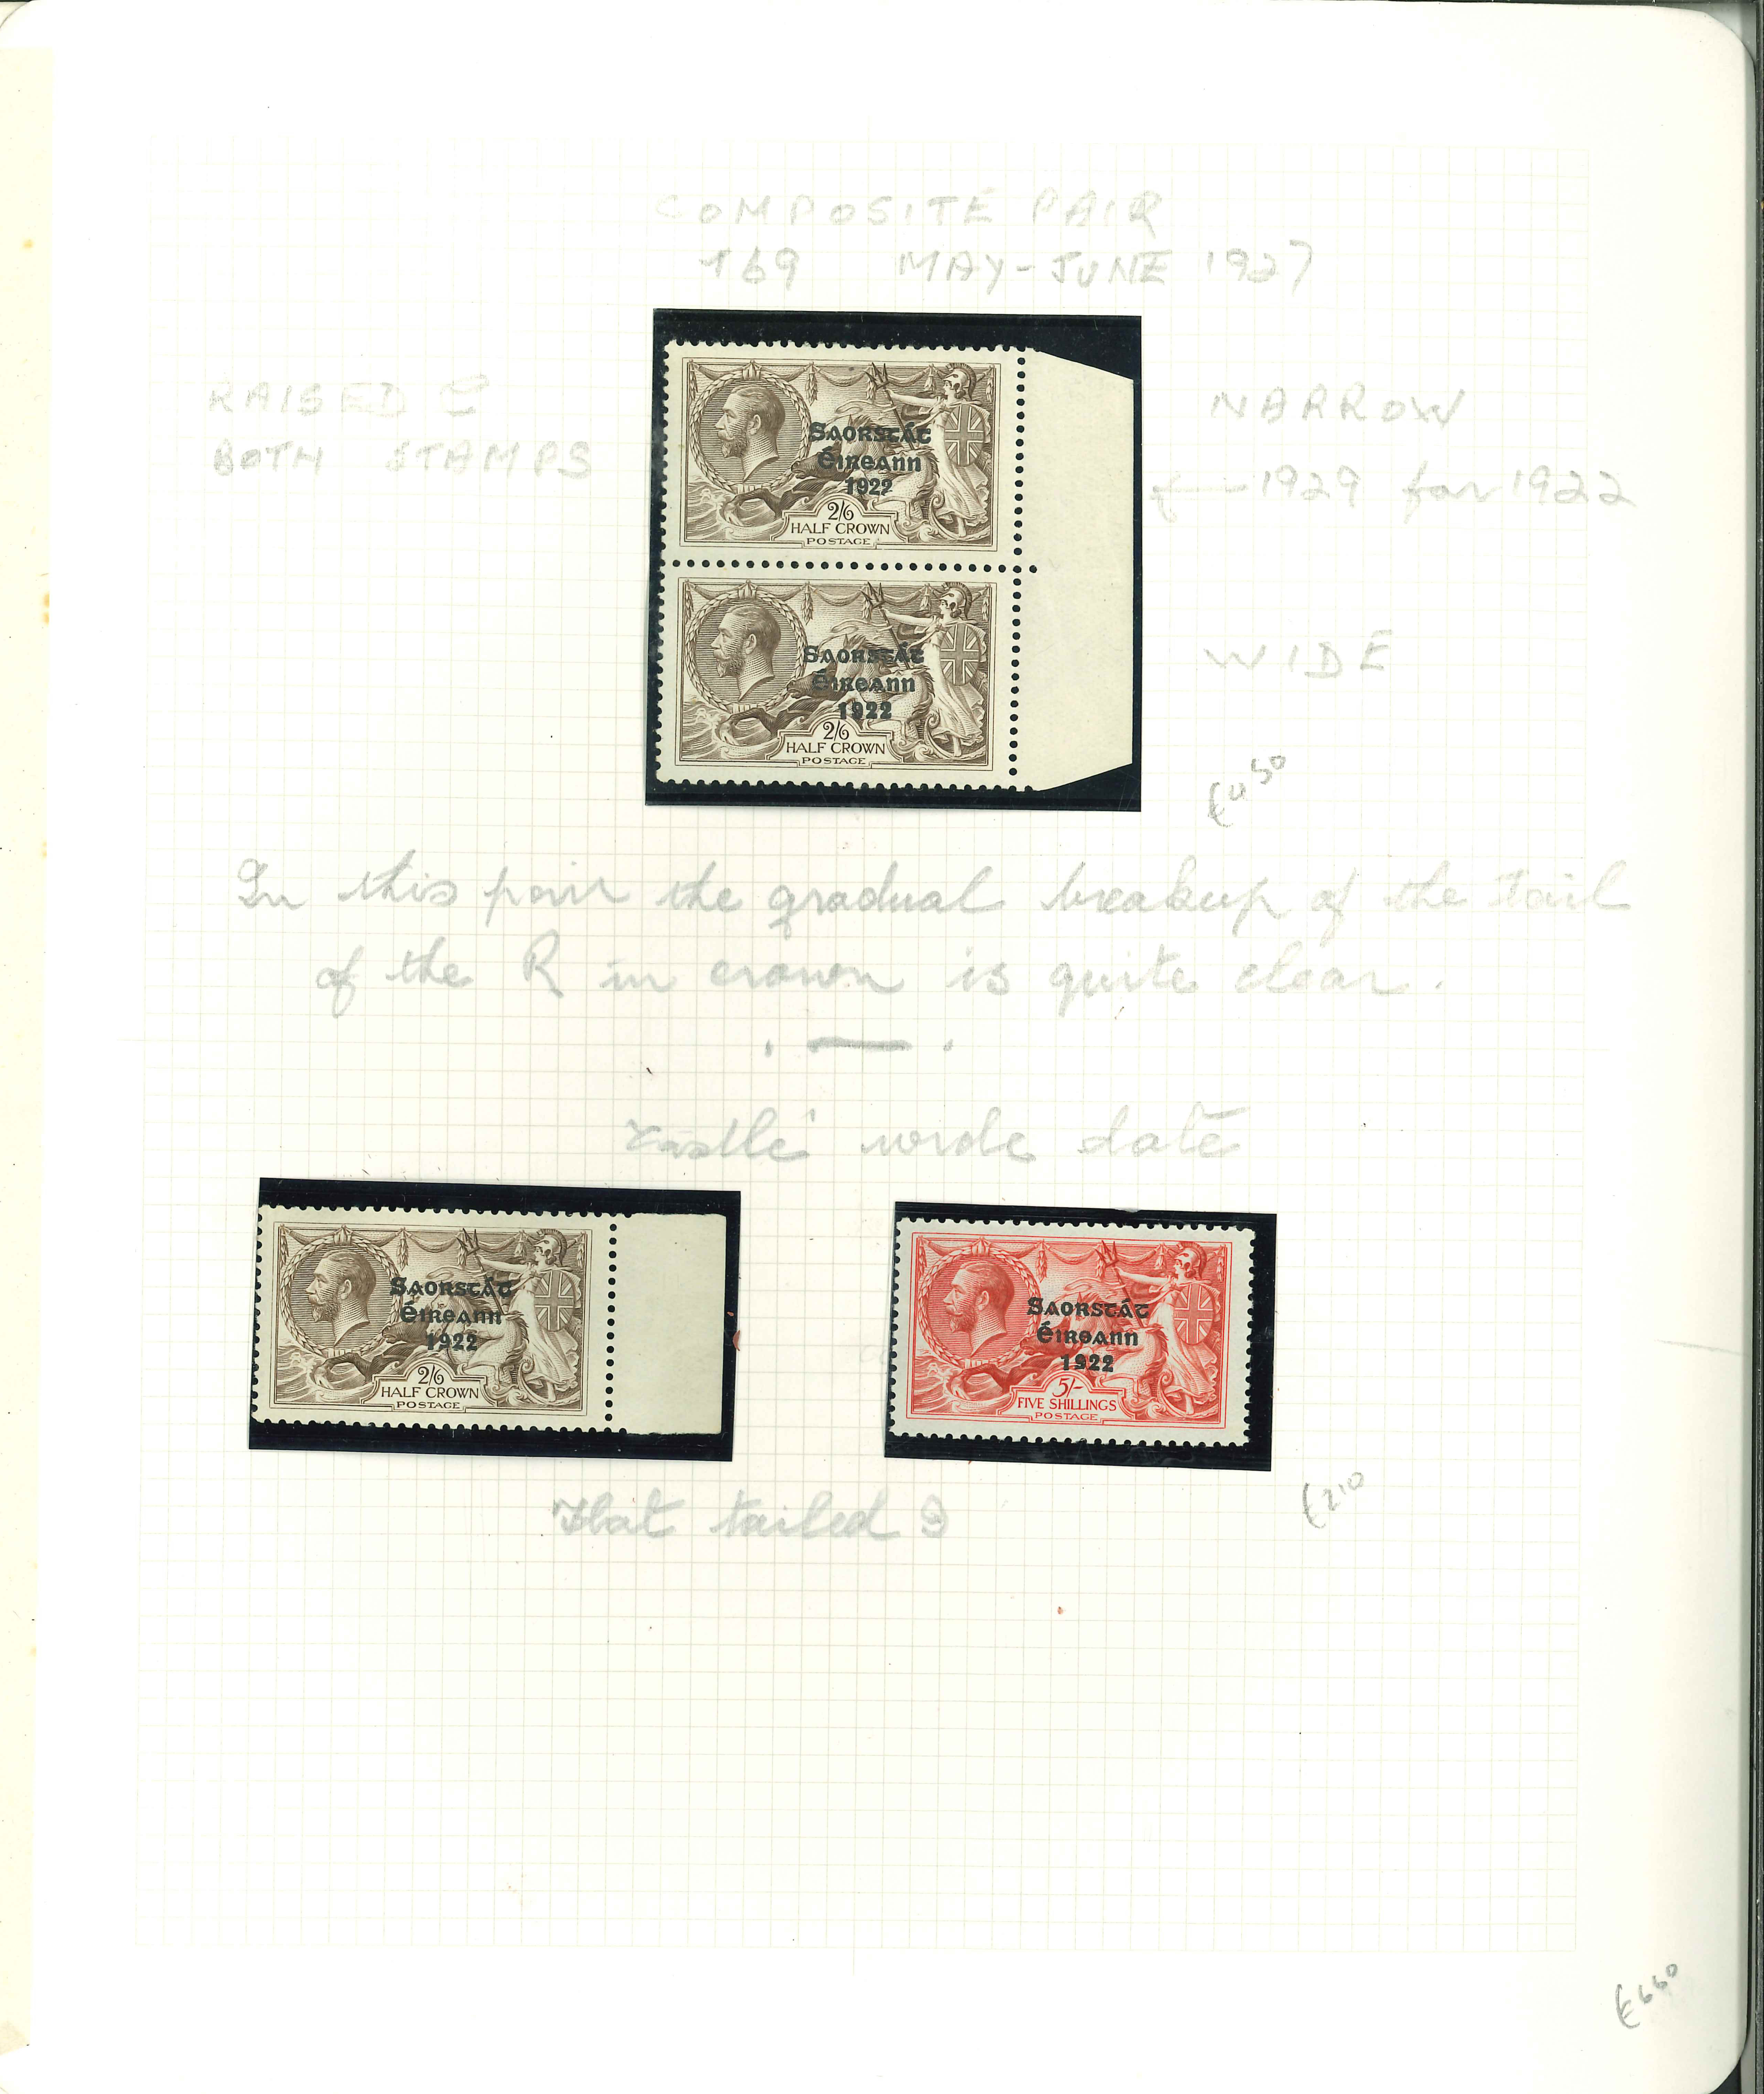 COMPOSITE PAIR
T69 MAY-JUNE 1927
RAISED
BOTH STAMPS
NARROW
1929 for 1922
WIDE
Saorstát
Éireann
1922
2/6
HALF CROWN
POSTAGE
Saorstát
Éireann
1922
2/6
HALF CROWN
POSTAGE
€450
In this pair the gradual breakup of the tail
of the R in crown is quite clear.
wide date
Saorstát
Éireann
1922
2/6
HALF CROWN
POSTAGE
Saorstát
Éireann
1922
5/-
FIVE SHILLINGS
POSTAGE
Flat tailed 9
€210
€660